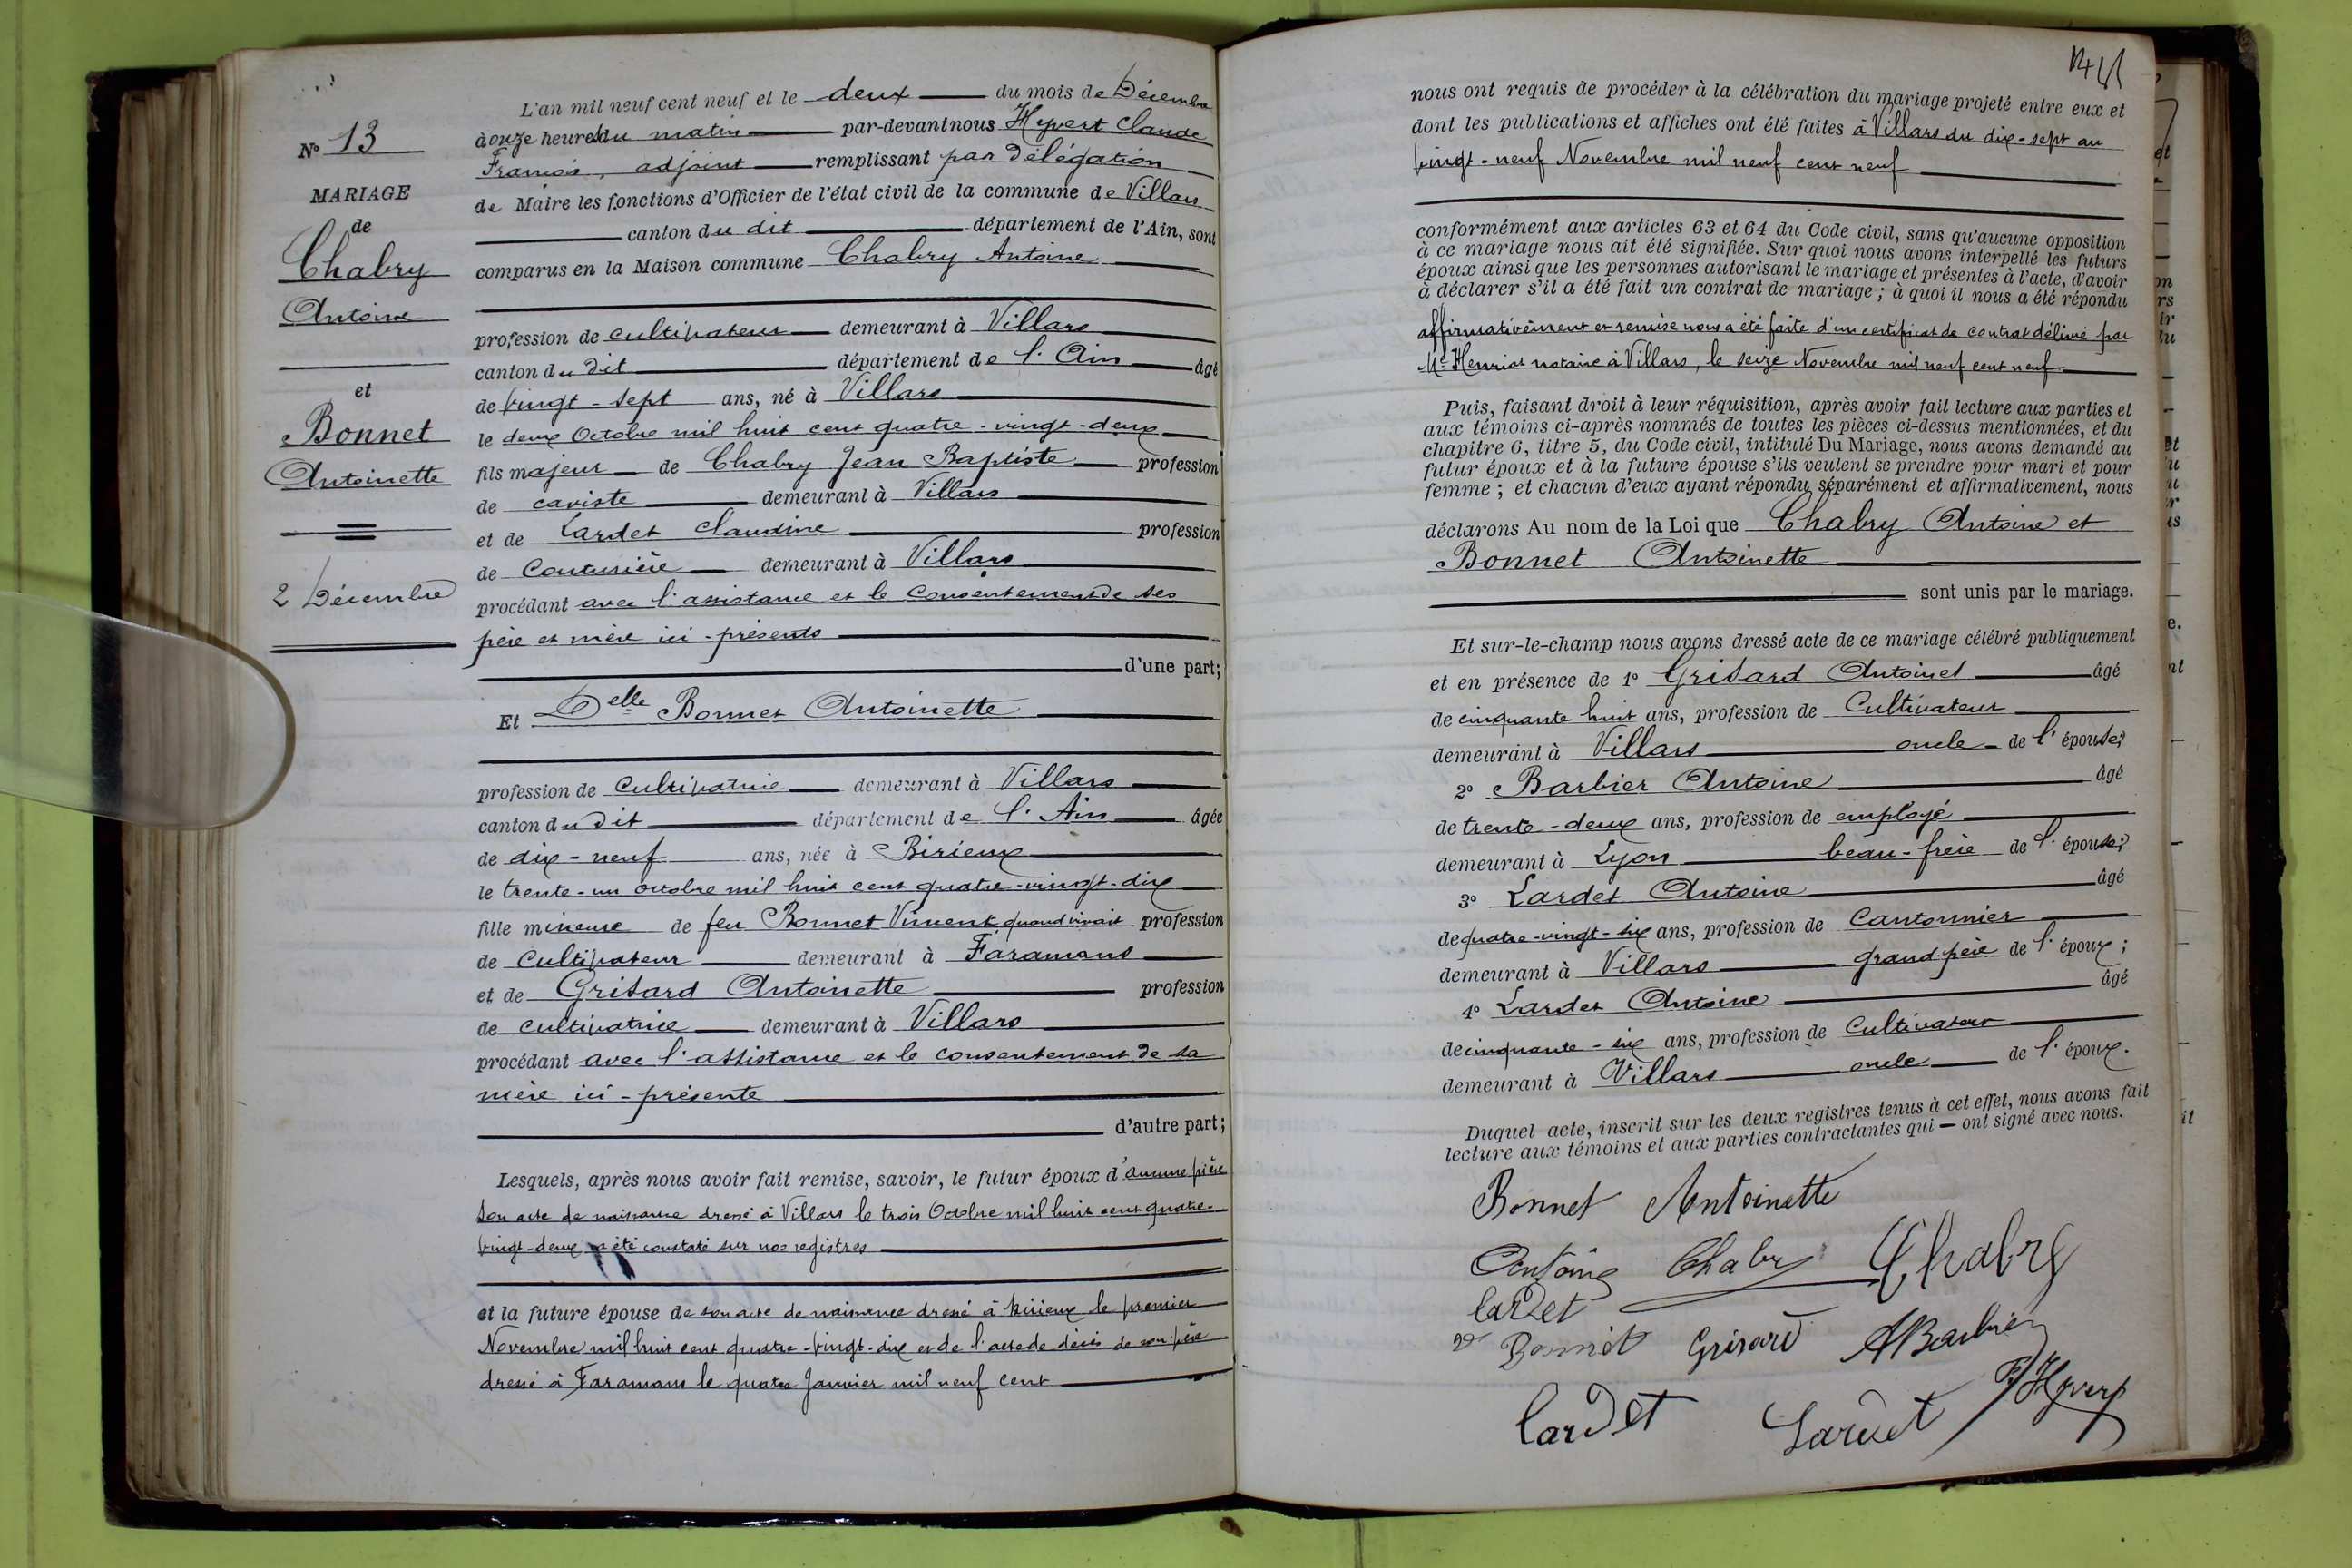 N° 13
MARIAGE
de
Chabry
Antoine
et
Bonnet
Antoinette
2 Décembre
L'an mil neuf cent neuf et le deux du mois de Décembre
à onze heures du matin par-devant nous Hyvert Claude
François, adjoint remplissant par délégation
de Maire les fonctions d'Officier de l'état civil de la commune de Villars
canton du dit département de l'Ain, sont
comparus en la Maison commune Chabry Antoine
profession de cultivateur demeurant à Villars
canton du dit département de l'Ain âgé
de vingt-sept ans, né à Villars
le deux Octobre mil huit cent quatre-vingt-deux
fils majeur de Chabry Jean Baptiste profession
de caviste demeurant à Villars
et de Lardet Claudine profession
de Couturière demeurant à Villars
procédant avec l'assistance et le consentement de ses
père et mère ici-présents
d'une part;
Et Delle Bonnet Antoinette
profession de Cultivatrice demeurant à Villars
canton du dit département de l'Ain âgée
de dix-neuf ans, née à Birieux
le trente-un octobre mil huit cent quatre-vingt-dix
fille mineure de feu Bonnet Vincent quand vivait profession
de Cultivateur demeurant à Faramans
et de Grisard Antoinette profession
de cultivatrice demeurant à Villars
procédant avec l'assistance et le consentement de sa
mère ici-présente
d'autre part;
Lesquels, après nous avoir fait remise, savoir, le futur époux d'aucune pièce
son acte de naissance dressé à Villars le trois Octobre mil huit cent quatre-
vingt-deux a été constaté sur nos registres
et la future épouse de son acte de naissance dressé à Birieux le premier
Novembre mil huit cent quatre-vingt-dix et de l'acte de décès de son père
dressé à Faramans le quatre Janvier mil neuf cent
nous ont requis de procéder à la célébration du mariage projeté entre eux et
dont les publications et affiches ont été faites à Villars du dix-sept au
vingt-neuf Novembre mil neuf cent neuf
conformément aux articles 63 et 64 du Code civil, sans qu'aucune opposition
à ce mariage nous ait été signifiée. Sur quoi nous avons interpellé les futurs
époux ainsi que les personnes autorisant le mariage et présentes à l'acte, d'avoir
à déclarer s'il a été fait un contrat de mariage; à quoi il nous a été répondu
affirmativement et remise nous a été faite d'un certificat de contrat délivré par
Me Henriot notaire à Villars, le seize Novembre mil neuf cent neuf
Puis, faisant droit à leur réquisition, après avoir fait lecture aux parties et
aux témoins ci-après nommés de toutes les pièces ci-dessus mentionnées, et du
chapitre 6, titre 5, du Code civil, intitulé Du Mariage, nous avons demandé au
futur époux et à la future épouse s'ils veulent se prendre pour mari et pour
femme; et chacun d'eux ayant répondu séparément et affirmativement, nous
déclarons Au nom de la Loi que Chabry Antoine et
Bonnet Antoinette
sont unis par le mariage.
Et sur-le-champ nous avons dressé acte de ce mariage célébré publiquement
et en présence de 1° Grisard Antoinet âgé
de cinquante huit ans, profession de Cultivateur
demeurant à Villars oncle de l'épouse;
2° Barbier Antoine âgé
de trente-deux ans, profession de employé
demeurant à Lyon beau-frère de l'épouse;
3° Lardet Antoine âgé
de quatre-vingt-six ans, profession de Cantonnier
demeurant à Villars grand-père de l'époux;
4° Lardet Antoine âgé
de cinquante-six ans, profession de Cultivateur
demeurant à Villars oncle de l'époux.
Duquel acte, inscrit sur les deux registres tenus à cet effet, nous avons fait
lecture aux témoins et aux parties contractantes qui — ont signé avec nous.
Bonnet Antoinette
Antoine Chabry Chabry
Lardet
Ve Bonnet Grisard ABarbier
Lardet Lardet F Hyvert